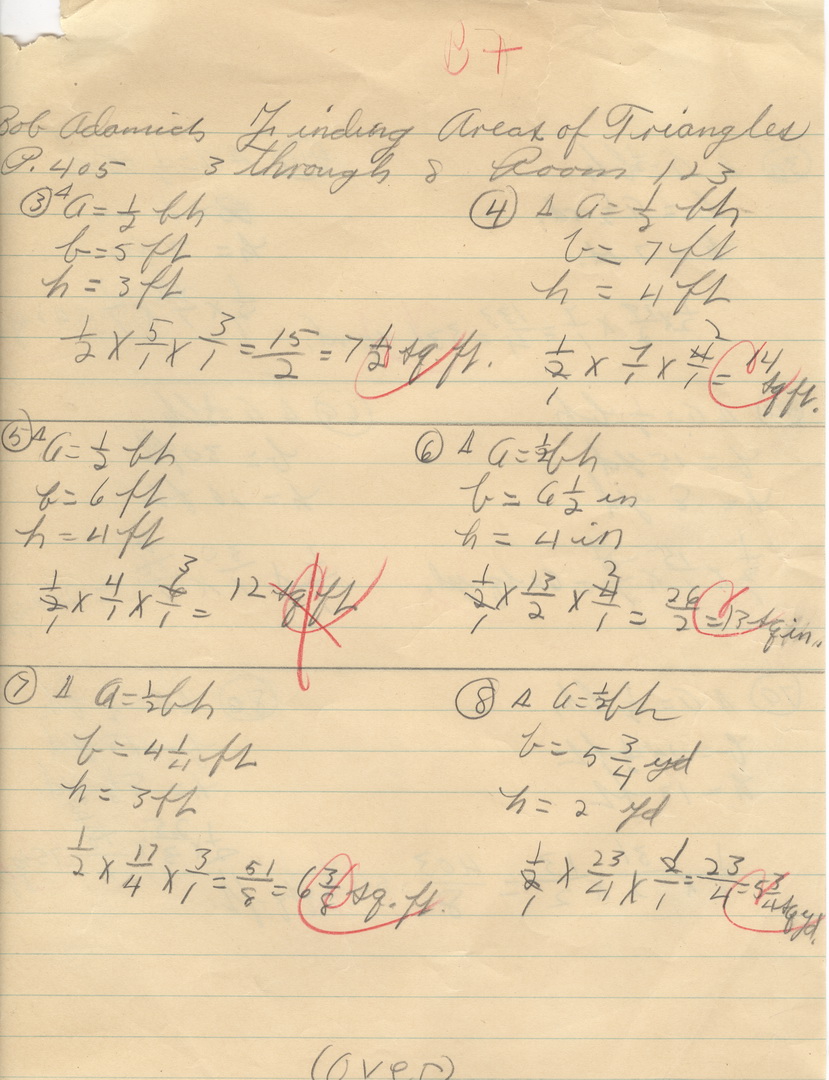 B+
Bob Adamich Finding Areas of Triangles
P. 405 3 through 8 Room 123
③ Δ a = 1/2 bh
b = 5 ft
h = 3 ft
1/2 x 5/1 x 3/1 = 15/2 = 7 1/2 sq ft.
④ Δ a = 1/2 bh
b = 7 ft
h = 4 ft
1/2 x 7/1 x 4/1 = 14 sq ft.
1 2
⑤ Δ a = 1/2 bh
b = 6 ft
h = 4 ft
1/2 x 4/1 x 6/1 = 12 sq ft
1 3
⑥ Δ a = 1/2 bh
b = 6 1/2 in
h = 4 in
1/2 x 13/2 x 4/1 = 26/2 = 13 sq in.
1 2
⑦ Δ a = 1/2 bh
b = 4 1/4 ft
h = 3 ft
1/2 x 17/4 x 3/1 = 51/8 = 6 3/8 sq. ft.
⑧ Δ a = 1/2 bh
b = 5 3/4 yd
h = 2 yd
1/2 x 23/4 x 2/1 = 23/4 = 5 3/4 sq yd.
1
(over)